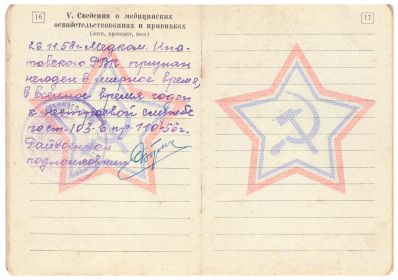 16
V. Сведения о медицинских
освидетельствованиях и прививках
(дата, препарат, доза)
26.11.58 г. Медком. Ипа-
товского РВК признан
негоден в мирное время,
в военное время годен
к нестроевой службе
по ст. 103-б пр. 110-50г.
Райвоенком
подполковник
17